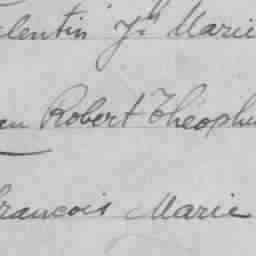 lentin Jh Marie
an Robert Théophi
rancois Marie